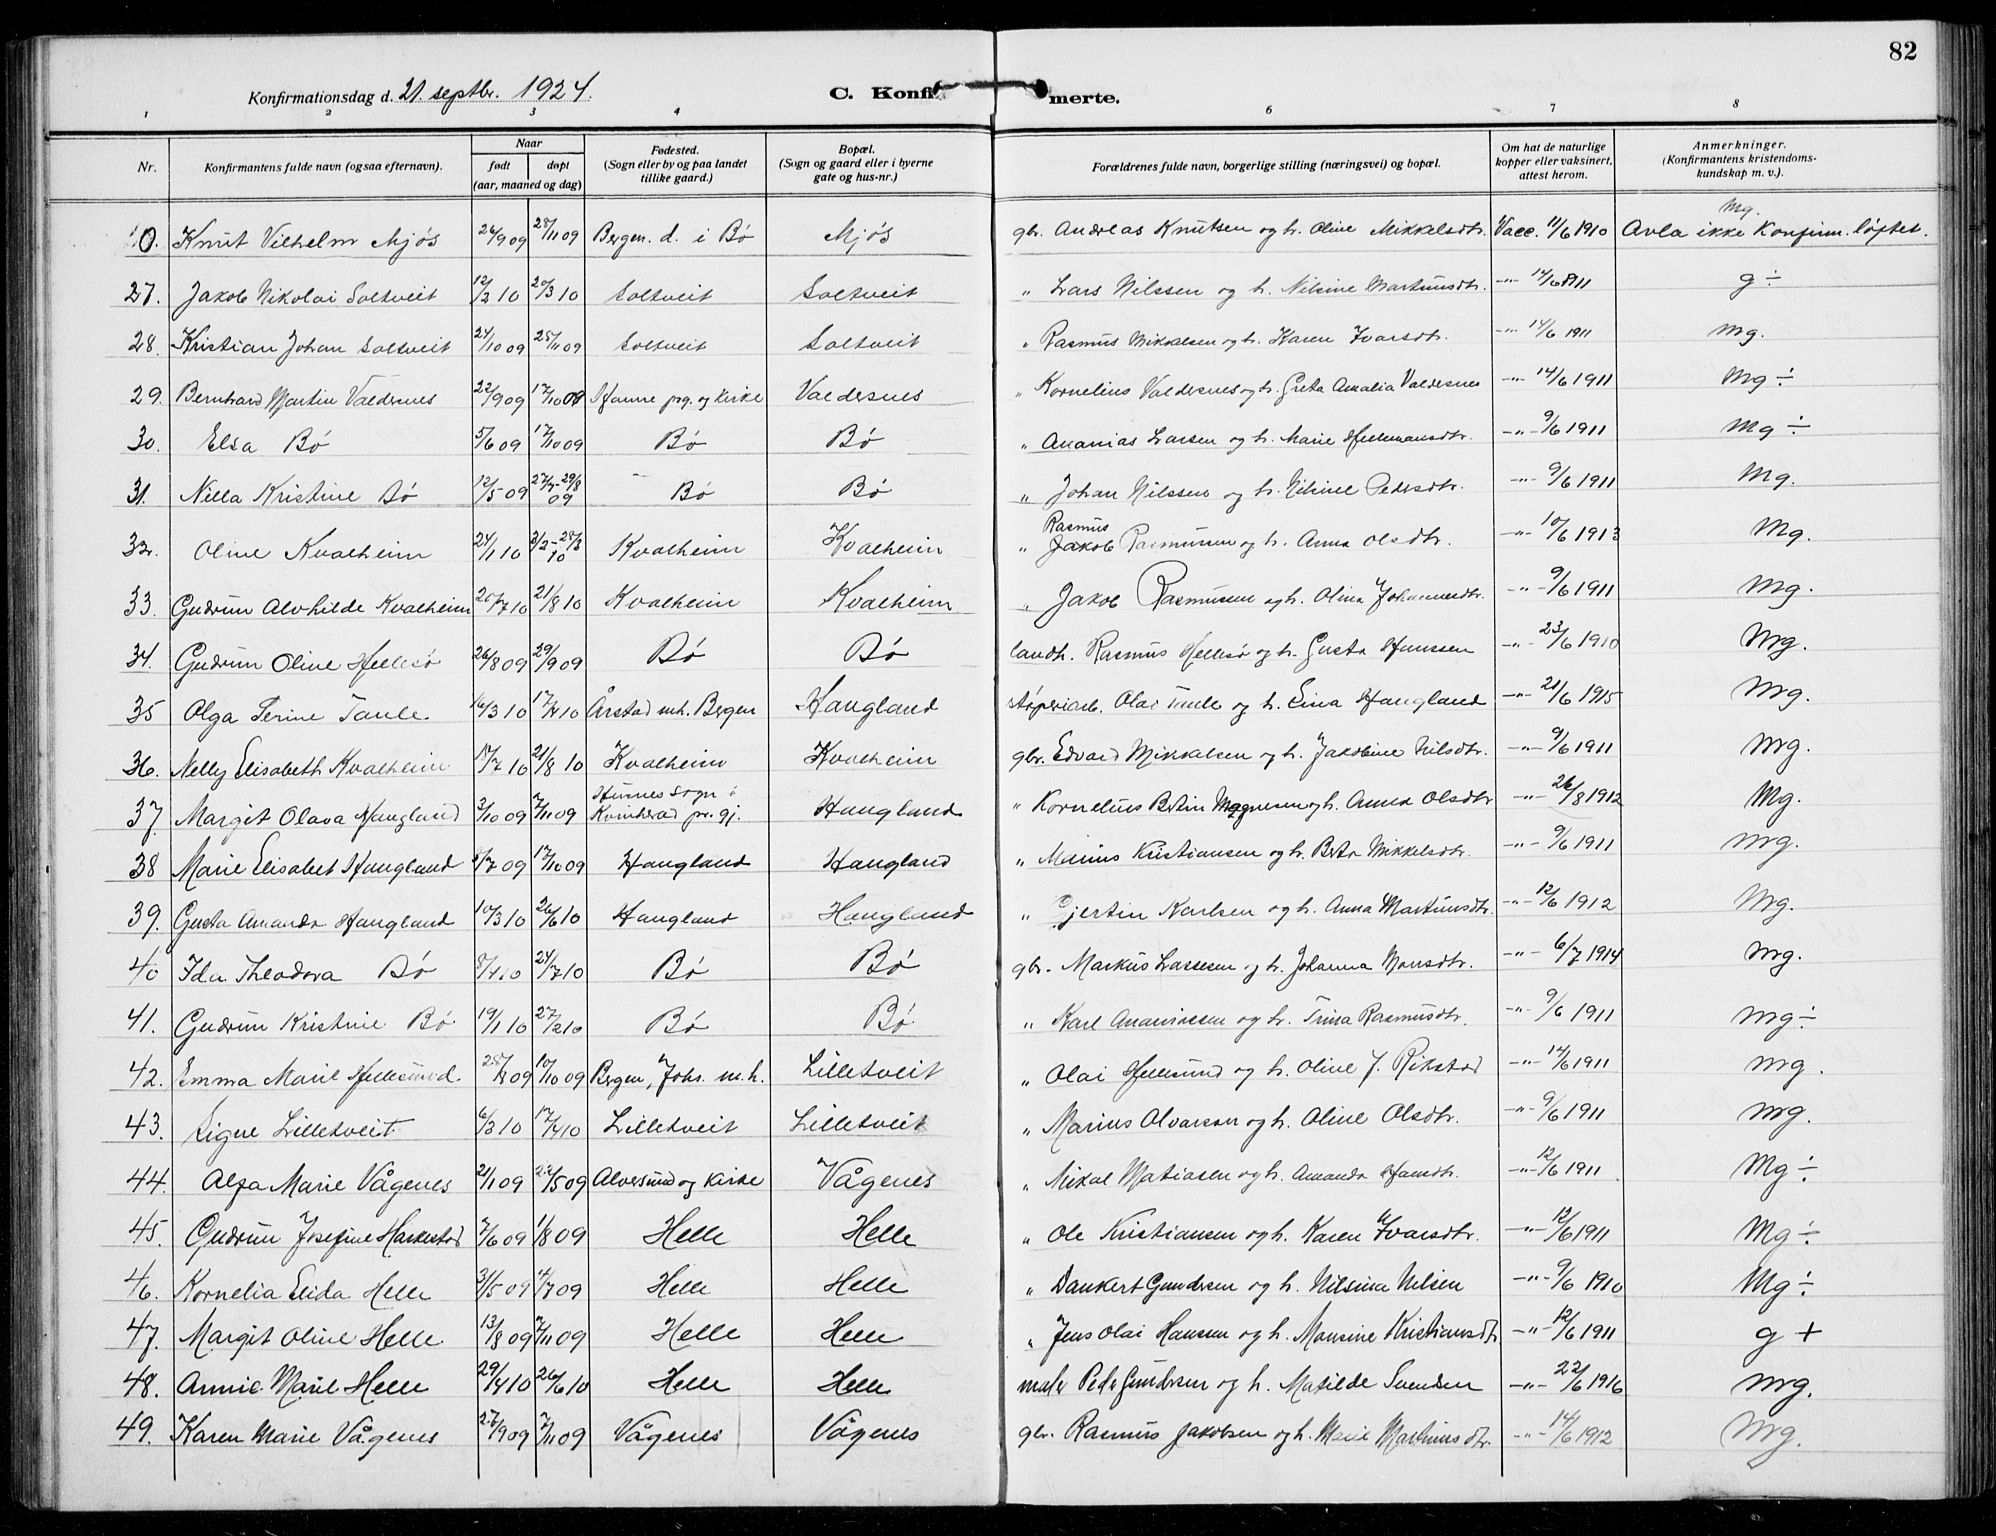 82
Konfirmationsdag d. 21. septbr. 1924. C. Konfirmerte.
1 2 3 4 6 7 8
Nr. Konfirmantens fulde navn (ogsaa efternavn). Naar født døpt (aar, maaned og dag) Fødested. (Sogn eller by og paa landet tillike gaard.) Bopæl. (Sogn og gaard eller i byerne gate og hus-nr.) Forældrenes fulde navn, borgerlige stilling (næringsvei) og bopæl. Om hat de naturlige kopper eller vaksinert, attest herom. Anmerkninger. (Konfirmantens kristendoms-kundskap m. v.).
0. Knut Vilhelm Mjøs 24/9 09 28/11 09 Bergen. d. i Bø Mjøs gbr. Andreas Knutsen og h. Oline Mikkelsdtr. Vacc. 11/6 1910 Mg. Avla ikke Konfirm. løftet.
27. Jakob Nikolai Soltveit 12/2 10 20/3 10 Soltveit Soltveit " Lars Nilssen og h. Nilsine Martinusdtr. -"- 14/6 1911 g ÷
28. Kristian Johan Soltveit 24/10 09 28/11 09 Soltveit Soltveit " Rasmus Mikkelsen og h. Karen Ivarsdtr. -"- 14/6 1911 Mg.
29. Bernhard Martin Valdersnes 22/9 09 17/10 09 Hamre prg. og Kirke Valdersnes " Kornelius Valdersnes og h. Greta Amalia Valdersnes -"- 14/6 1911 Mg ÷
30. Elsa Bø 5/6 09 17/10 09 Bø Bø " Ananias Larsen og h. Marie Hellemansdtr. -"- 9/6 1911 Mg ÷
31. Nella Kristine Bø 12/5 09 27/7-29/8 09 Bø Bø " Johan Nilssen og h. Nilsine Pedersdtr. -"- 9/6 1911 Mg.
32. Oline Kvalheim 24/1 10 3/2-28/3 10 Kvalheim Kvalheim " Rasmus Jakob Rasmussen og h. Anna Olsdtr. -"- 10/6 1913 Mg.
33. Gudrun Alvhilde Kvalheim 20/7 10 21/8 10 Kvalheim Kvalheim " Jakob Rasmussen og h. Olina Johannesdtr. -"- 9/6 1911 Mg.
34. Gudrun Oline Hellesø 26/8 09 29/9 09 Bø Bø landh. Rasmus Hellesø og h. Gusta Hanssen -"- 23/6 1910 Mg.
35 Olga Serine Taule 16/3 10 17/4 10 Årstad mh. Bergen Haugland støperiarb. Olai Taule og h. Eina Haugland -"- 21/6 1915 Mg.
36. Nelly Elisabeth Kvalheim 17/7 10 21/8 10 Kvalheim Kvalheim gbr. Edvard Mikkelsen og h. Jakobine Nilsdtr. -"- 9/6 1911 Mg.
37. Margit Olava Haugland 3/10 09 7/11 09 sogn i Kvinherad pr. gj. Haugland " Kornelius Bertin Magnesen og h. Anna Olsdtr -"- 26/8 1912 Mg.
38 Marie Elisabet Haugland 5/7 09 17/10 09 Haugland Haugland " Marius Kristiansen og h. Berta Mikkelsdtr. -"- 9/6 1911 Mg.
39. Gusta Amanda Haugland 10/3 10 26/6 10 Haugland Haugland " Gjertin Karlsen og h. Anna Martinusdtr. -"- 12/6 1912 Mg.
40 Ida Theodora Bø 8/4 10 24/7 10 Bø Bø gbr. Markus Lassesen og h. Johanna Monsdtr. -"- 6/7 1914 Mg.
41. Gudrun Kristine Bø 19/1 10 27/2 10 Bø Bø " Karl Ananiassen og h. Trina Rasmusdtr. -"- 9/6 1911 Mg ÷
42. Emma Marie Hellesund 28/8 09 10/10 09 Bergen, Johs. m.h. Lilletveit " Olai Hellesund og h. Oline J. Rikstad -"- 14/6 1911 Mg.
43. Signe Lilletveit 6/3 10 17/4 10 Lilletveit Lilletveit " Marius Alvarson og h. Oline Olsdtr. -"- 9/6 1911 Mg.
44. Alfa Marie Vågenes 21/1 09 22/5 09 Alversund og Kirke Vågenes " Mikal Matiasen og h. Amanda Hansdtr. -"- 12/6 1911 Mg ÷
45. Gudrun Josefine Harkestad 7/6 09 1/8 09 Helle Helle " Ole Kristiansen og h. Karen Ivarsdtr. -"- 12/6 1911 Mg ÷
46. Kornelia Elida Helle 31/5 09 4/7 09 Helle Helle " Dankert Gundersen og h. Nilsina Nilsen -"- 9/6 1910 Mg ÷
47. Margit Oline Helle 13/8 09 7/11 09 Helle Helle " Jens Olai Hansen og h. Monsine Kristiansdtr -"- 12/6 1911 g +
48. Annie Marie Helle 29/4 10 26/6 10 Helle Helle maler Peder Gundersen og h. Matilde Svendsen -"- 22/6 1916 Mg.
49. Karen Marie Vågenes 27/9 09 7/11 09 Vågenes Vågenes gbr. Rasmus Jakobsen og h. Marie Martinusdtr. -"- 14/6 1912 Mg.